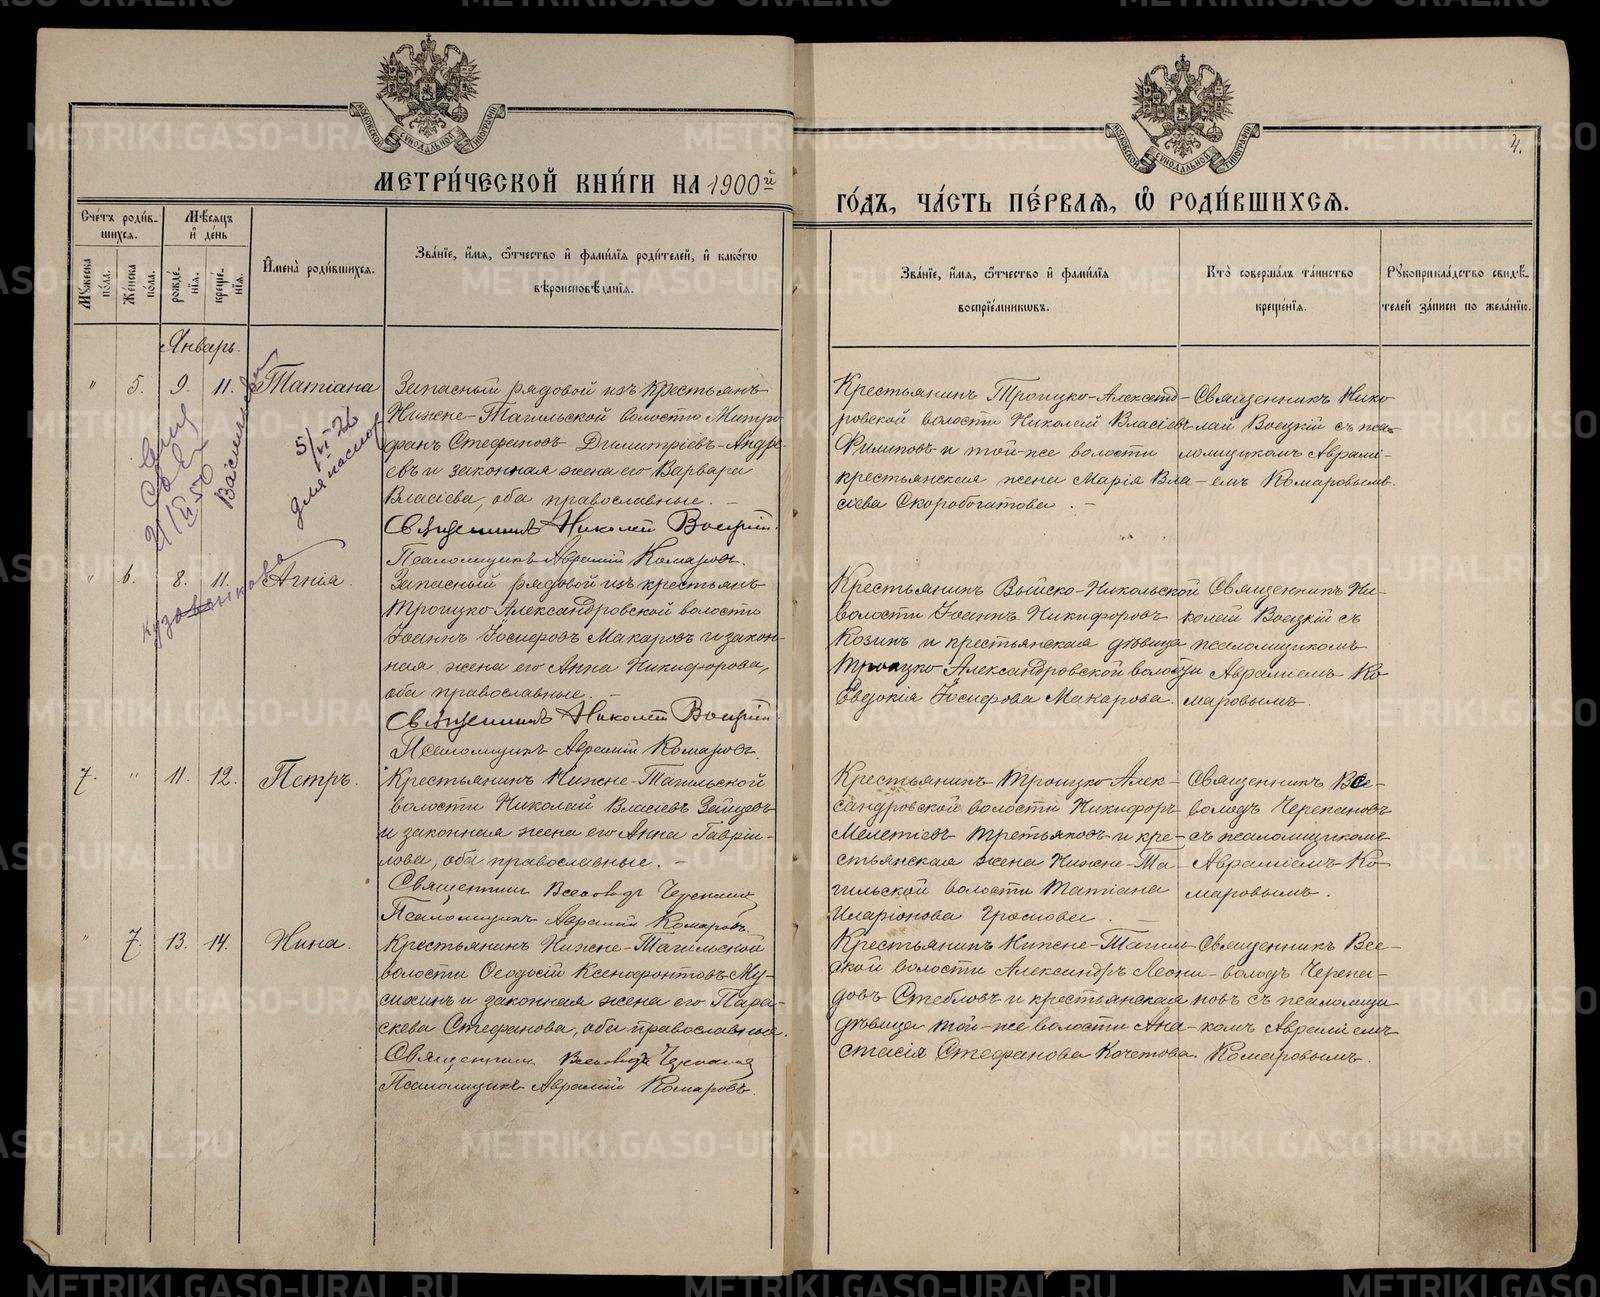 МЕТРИ́ЧЕСКОЙ КНИ́ГИ НА 1900й
ГО́ДЪ, ЧА́СТЬ ПЕ́РВАѦ, Ѽ РОДИ́ВШИХСѦ.
4.
Сче́тъ роди́в-
шихсѧ.
Мѣ́сѧцъ
и҆ де́нь
Мꙋ́жеска
по́ла.
Же́нска
по́ла.
рожде́-
нїѧ.
креще́-
нїѧ.
И҆мена̀ роди́вшихсѧ.
Зва́нїе, и҆́мѧ, ѻ҆́тчество и҆ фами́лїѧ роди́телей, и҆ како́гѡ
вѣроисповѣ́данїѧ.
Зва́нїе, и҆́мѧ, ѻ҆́тчество и҆ фами́лїѧ
воспрїе́мникѡвъ.
Кто̀ соверша́лъ та́инство
креще́нїѧ.
Рꙋкоприкла́дство свидѣ́-
телей за́писи по жела́нїю.
Январь.
" 5. 9. 11. Татiана
Запасный рядовой изъ крестьянъ
Нижне-Тагильской волости Митро-
фанъ Стефановъ Димитріевъ-Андре-
евъ и законная жена его Варвара
Власіева, оба православные. —
Священникъ Николай Воецкій.
Псаломщикъ Авраамій Комаровъ.
Крестьянинъ Троицко-Александ-
ровской волости Николай Власіевъ
Филиповъ и той-же волости
крестьянская жена Марія Вла-
сіева Скоробогатова. —
Священникъ Нико-
лай Воецкій съ пса-
ломщикомъ Авраамі-
емъ Комаровымъ.
5/VI-26
для паспорт
21/II 50
" 6. 8. 11. Агнія.
Запасный рядовой изъ крестьянъ
Троицко-Александровской волости
Іоаннъ Іосифовъ Макаровъ и закон-
ная жена его Анна Никифорова,
оба православные. —
Священникъ Николай Воецкій.
Псаломщикъ Авраамій Комаровъ.
Крестьянинъ Выйско-Никольской
волости Іоаннъ Никифоровъ
Козинъ и крестьянская дѣвица
Троицко-Александровской волости
Евдокія Іосифова Макарова.
Священникъ Ни-
колай Воецкій съ
псаломщикомъ
Авраамiемъ Ко-
маровымъ.
7. " 11. 12. Петръ.
Крестьянинъ Нижне-Тагильской
волости Николай Власіевъ Зайцевъ
и законная жена его Анна Гаврiи-
лова, оба православные. —
Священникъ Всеволодъ Черепановъ
Псаломщикъ Авраамій Комаровъ.
Крестьянинъ Троицко-Алек-
сандровской волости Никифоръ
Мелетіевъ Третьяковъ и кре-
стьянская жена Нижне-Та-
гильской волости Татіана
Иларіонова Громова. —
Священникъ Все-
володъ Черепановъ
съ псаломщикомъ
Авраамiемъ Ко-
маровымъ.
" 7. 13. 14. Нина.
Крестьянинъ Нижне-Тагильской
волости Ѳеодосій Ксенофонтовъ Му-
сихинъ и законная жена его Пара-
скева Стефанова, оба православные.
Священникъ Всеволодъ Черепановъ
Псаломщикъ Авраамій Комаровъ.
Крестьянинъ Нижне-Тагиль-
ской волости Александръ Леони-
довъ Стебловъ и крестьянская
дѣвица той-же волости Ана-
стасія Стефанова Кочетова.
Священникъ Все-
володъ Черепа-
новъ съ псаломщи-
комъ Авраамiемъ
Комаровымъ.